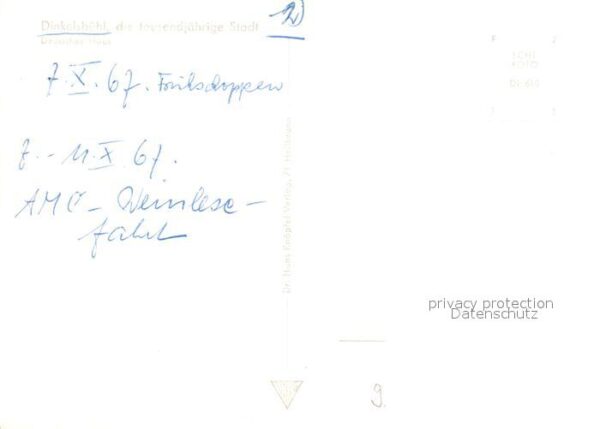 Dinkelsbühl, die tausendjährige Stadt
Deutsches Haus
2)
7.X.67. Frühschoppen
7.-11.X.67.
AMC - Weinlese-
fahrt
Dr. Hans Knöpfel Verlag, 71 Heilbronn
ECHT
FOTO
privacy protection
Datenschutz
9.